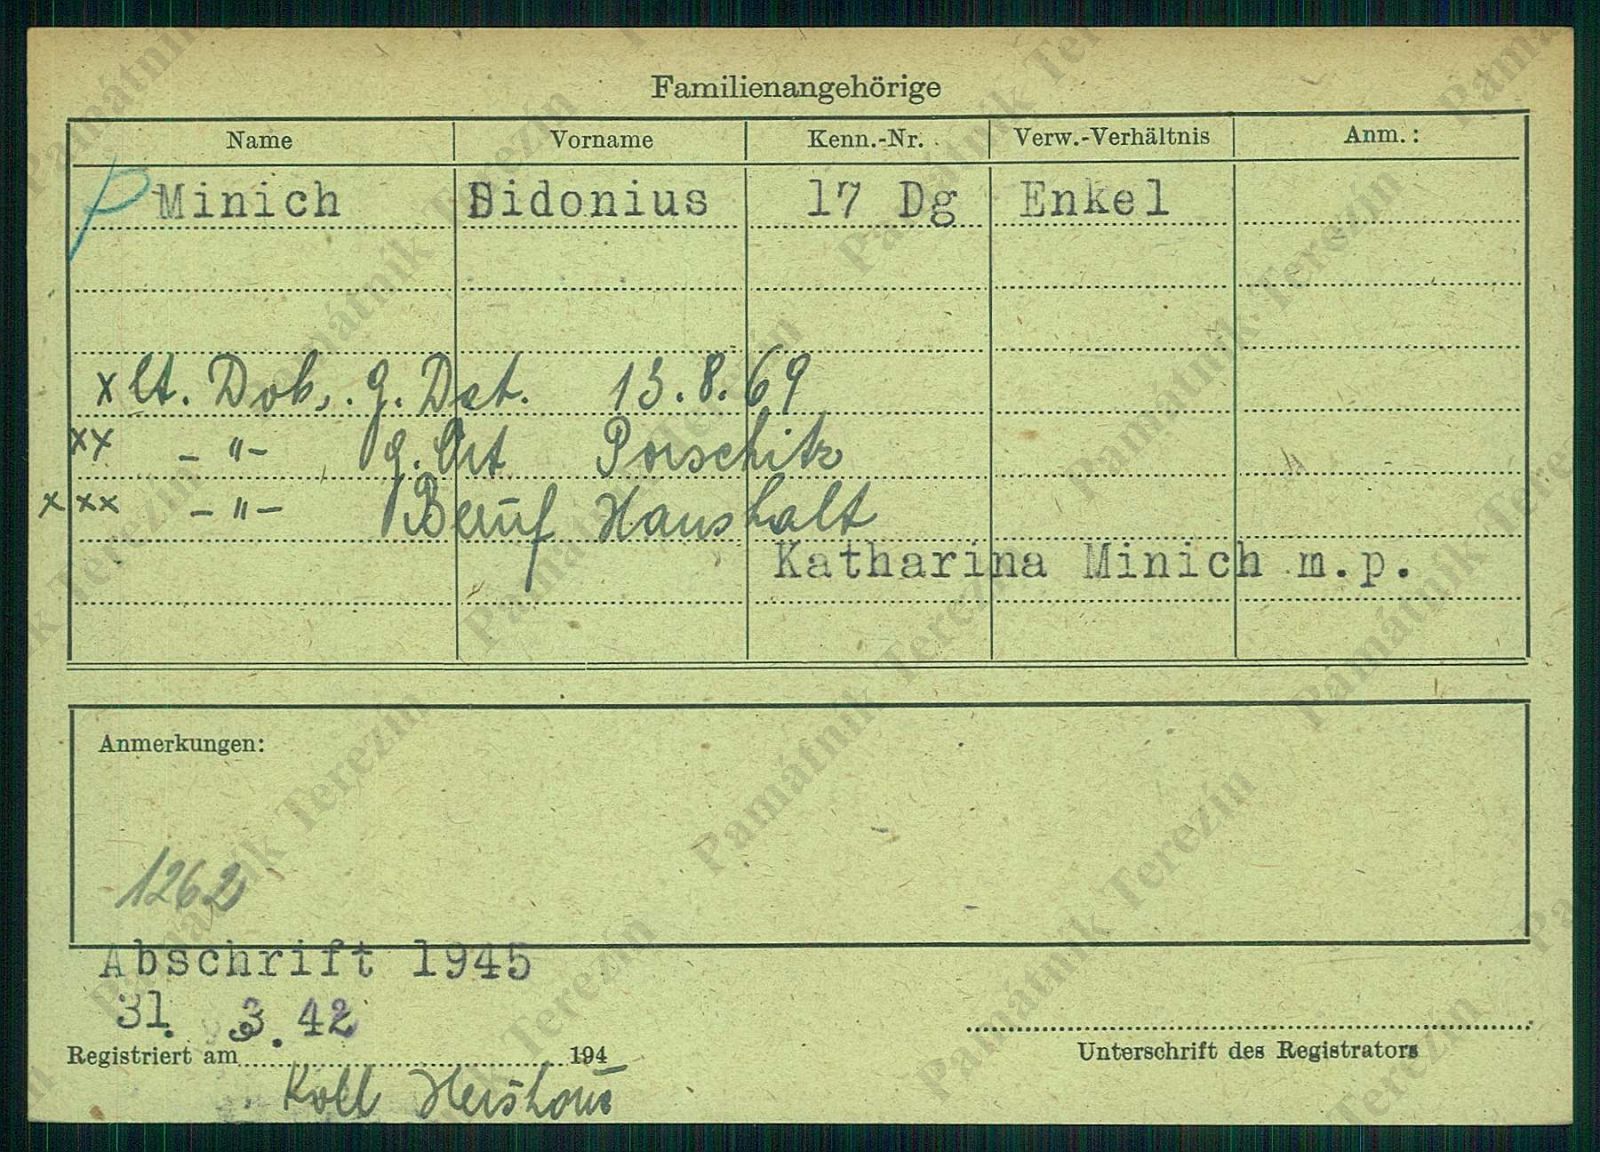 Familienangehörige
Name Vorname Kenn.-Nr. Verw.-Verhältnis Anm.:
Minich Sidonius 17 Dg Enkel
x lt. Dok. g. Dat. 13.8.69
xx -"- g. Ort Porschitz
xxx -"- Beruf Haushalt
Katharina Minich m.p.
Anmerkungen:
1262
Abschrift 1945
31. 3. 42
Registriert am 194
Unterschrift des Registrators
Koll
Památník Terezín